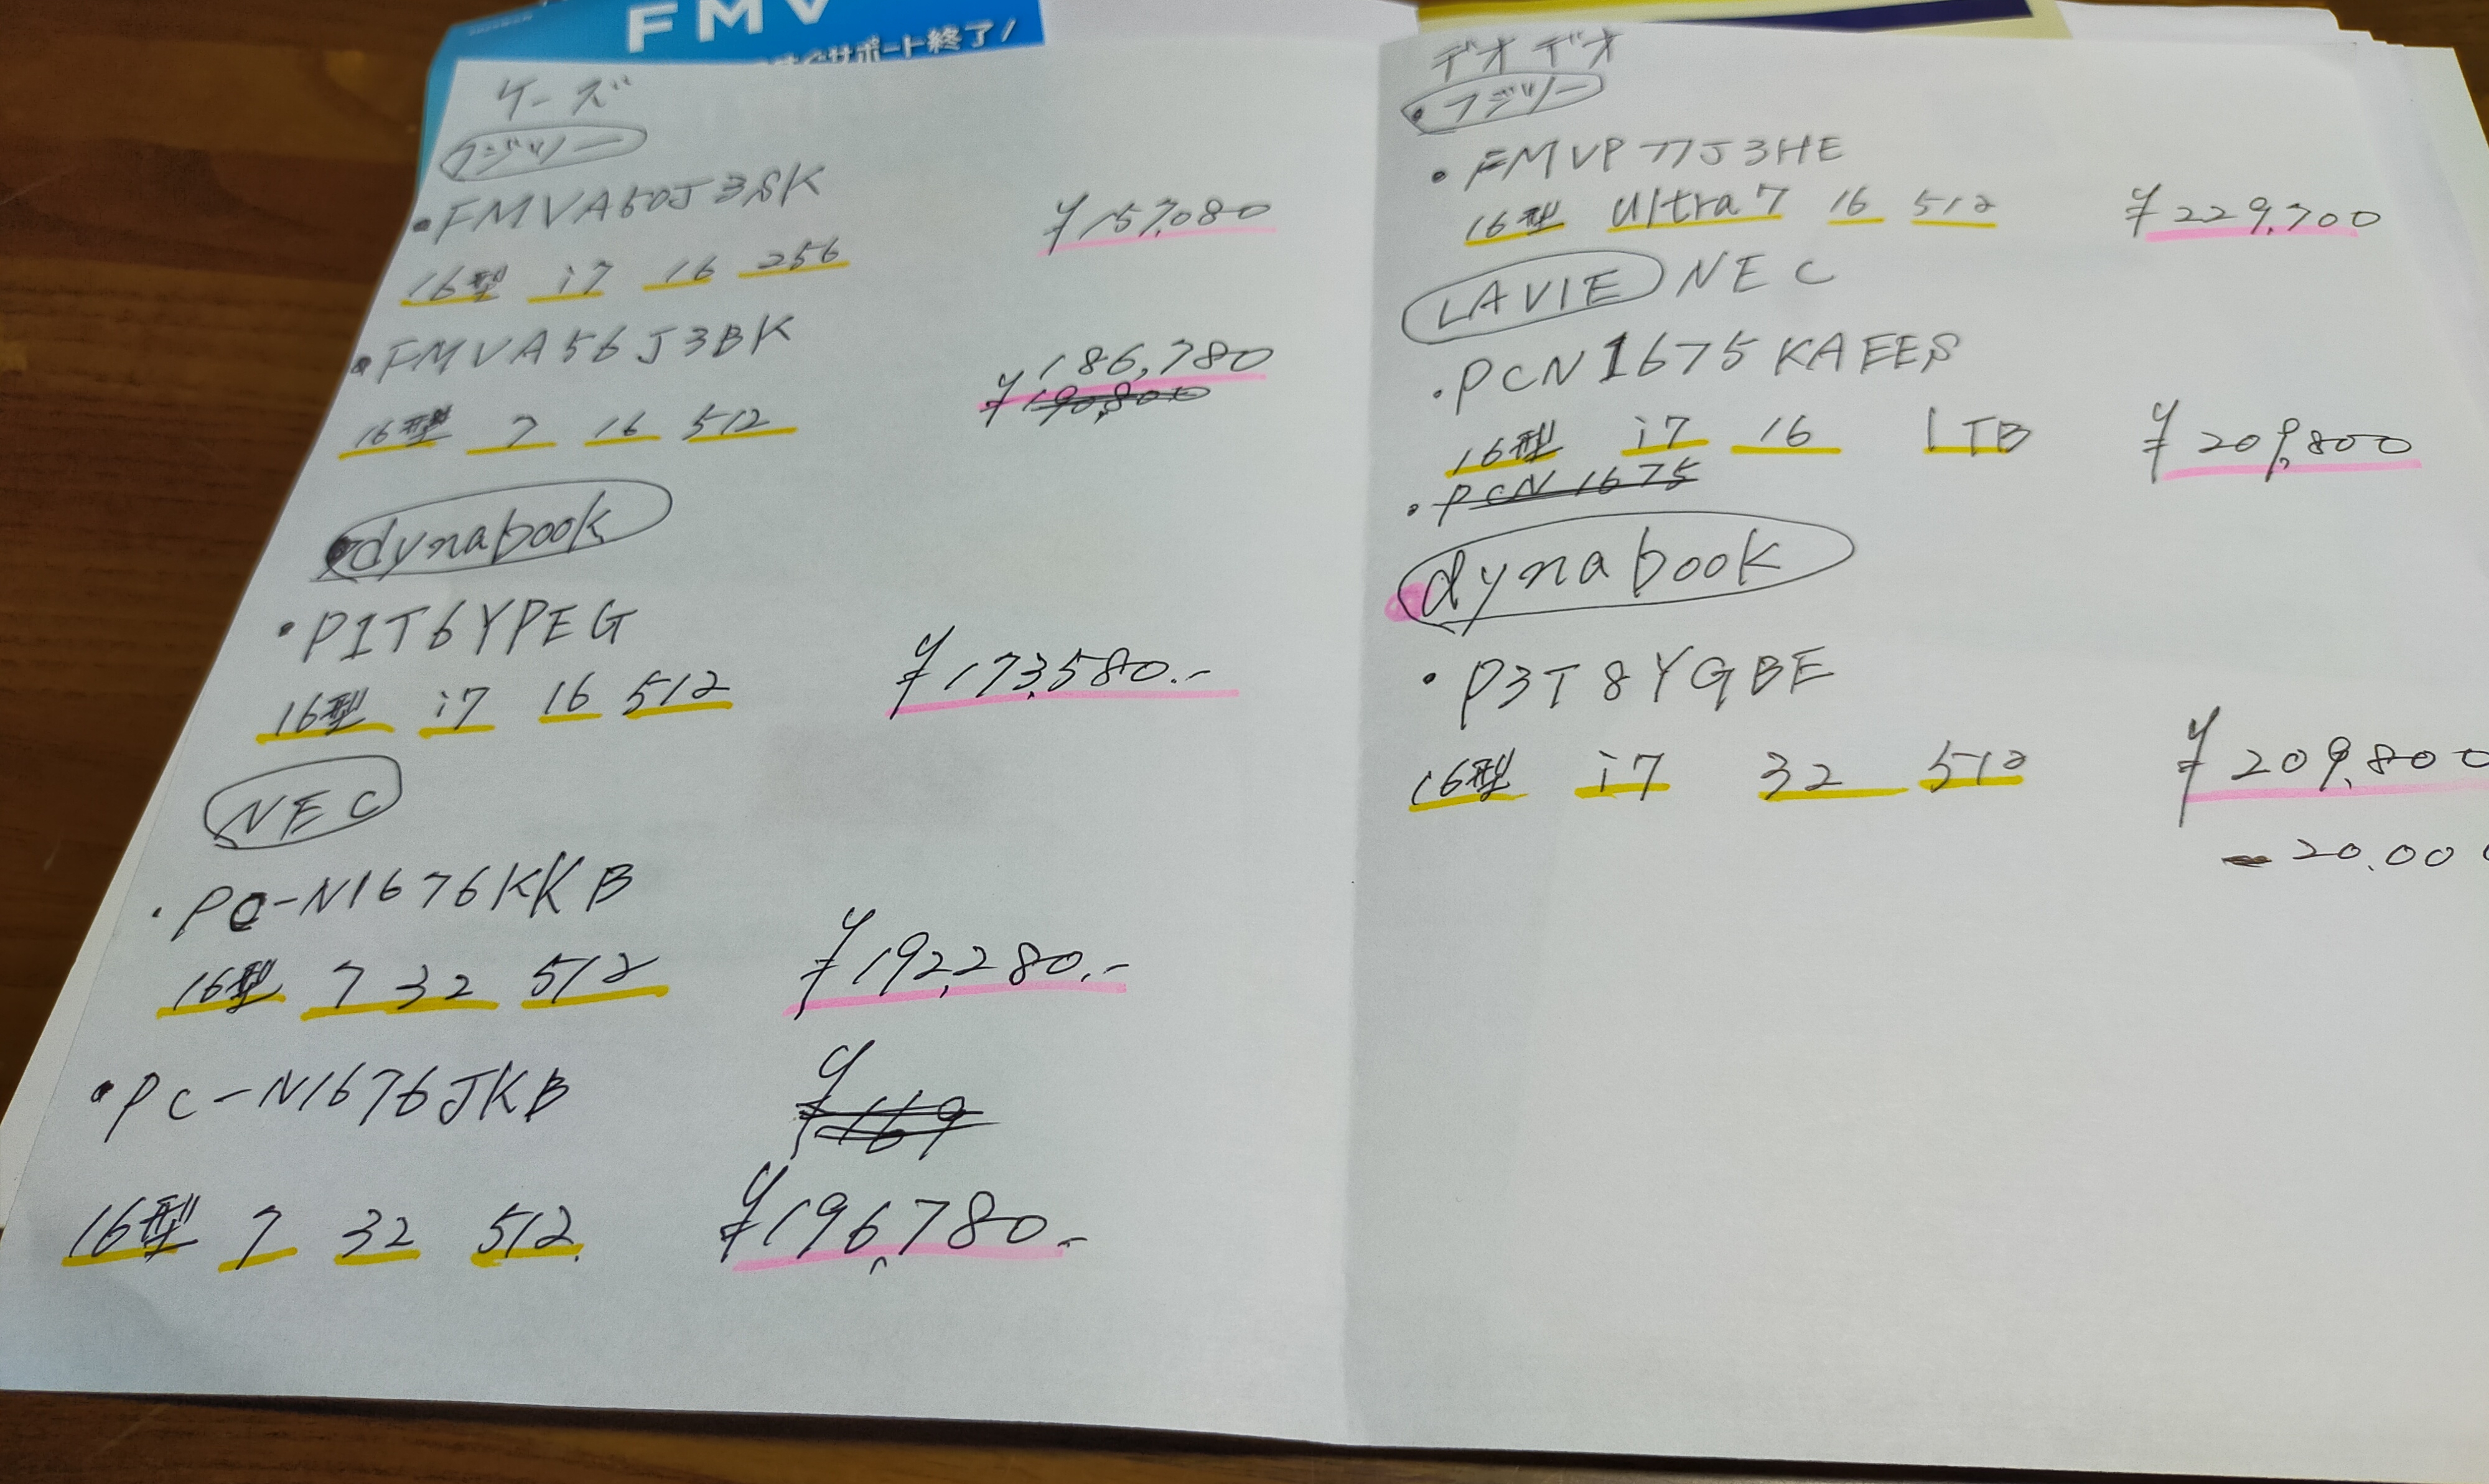 FMV
サポート終了!
ケーズ
フジツー
・FMVA50J3SK
16型 i7 16 256 ¥157,080
・FMVA56J3BK
186,780
16型 7 16 512 ¥190,800
dynabook
・P1T6YPEG
16型 i7 16 512 ¥173,580.-
NEC
・PC-N1676KKB
16型 7 32 512 ¥192,280.-
・PC-N1676JKB ¥169
16型 7 32 512 ¥196,780.-
デオデオ
・フジツー
・FMVP77J3HE
16型 Ultra7 16 512 ¥229,700
LAVIE NEC
・PCN1675KAEES
16型 i7 16 1TB ¥209,800
・PCN1675
dynabook
・P3T8YGBE
16型 i7 32 512 ¥209,800
-20.00